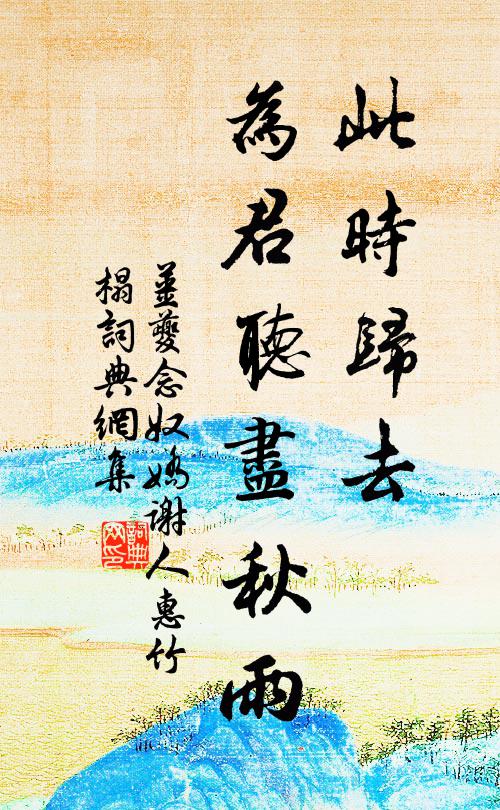 此時歸去
為君聽盡秋雨
薑夔念奴嬌謝人惠竹
榻詞典網集
詞典网印